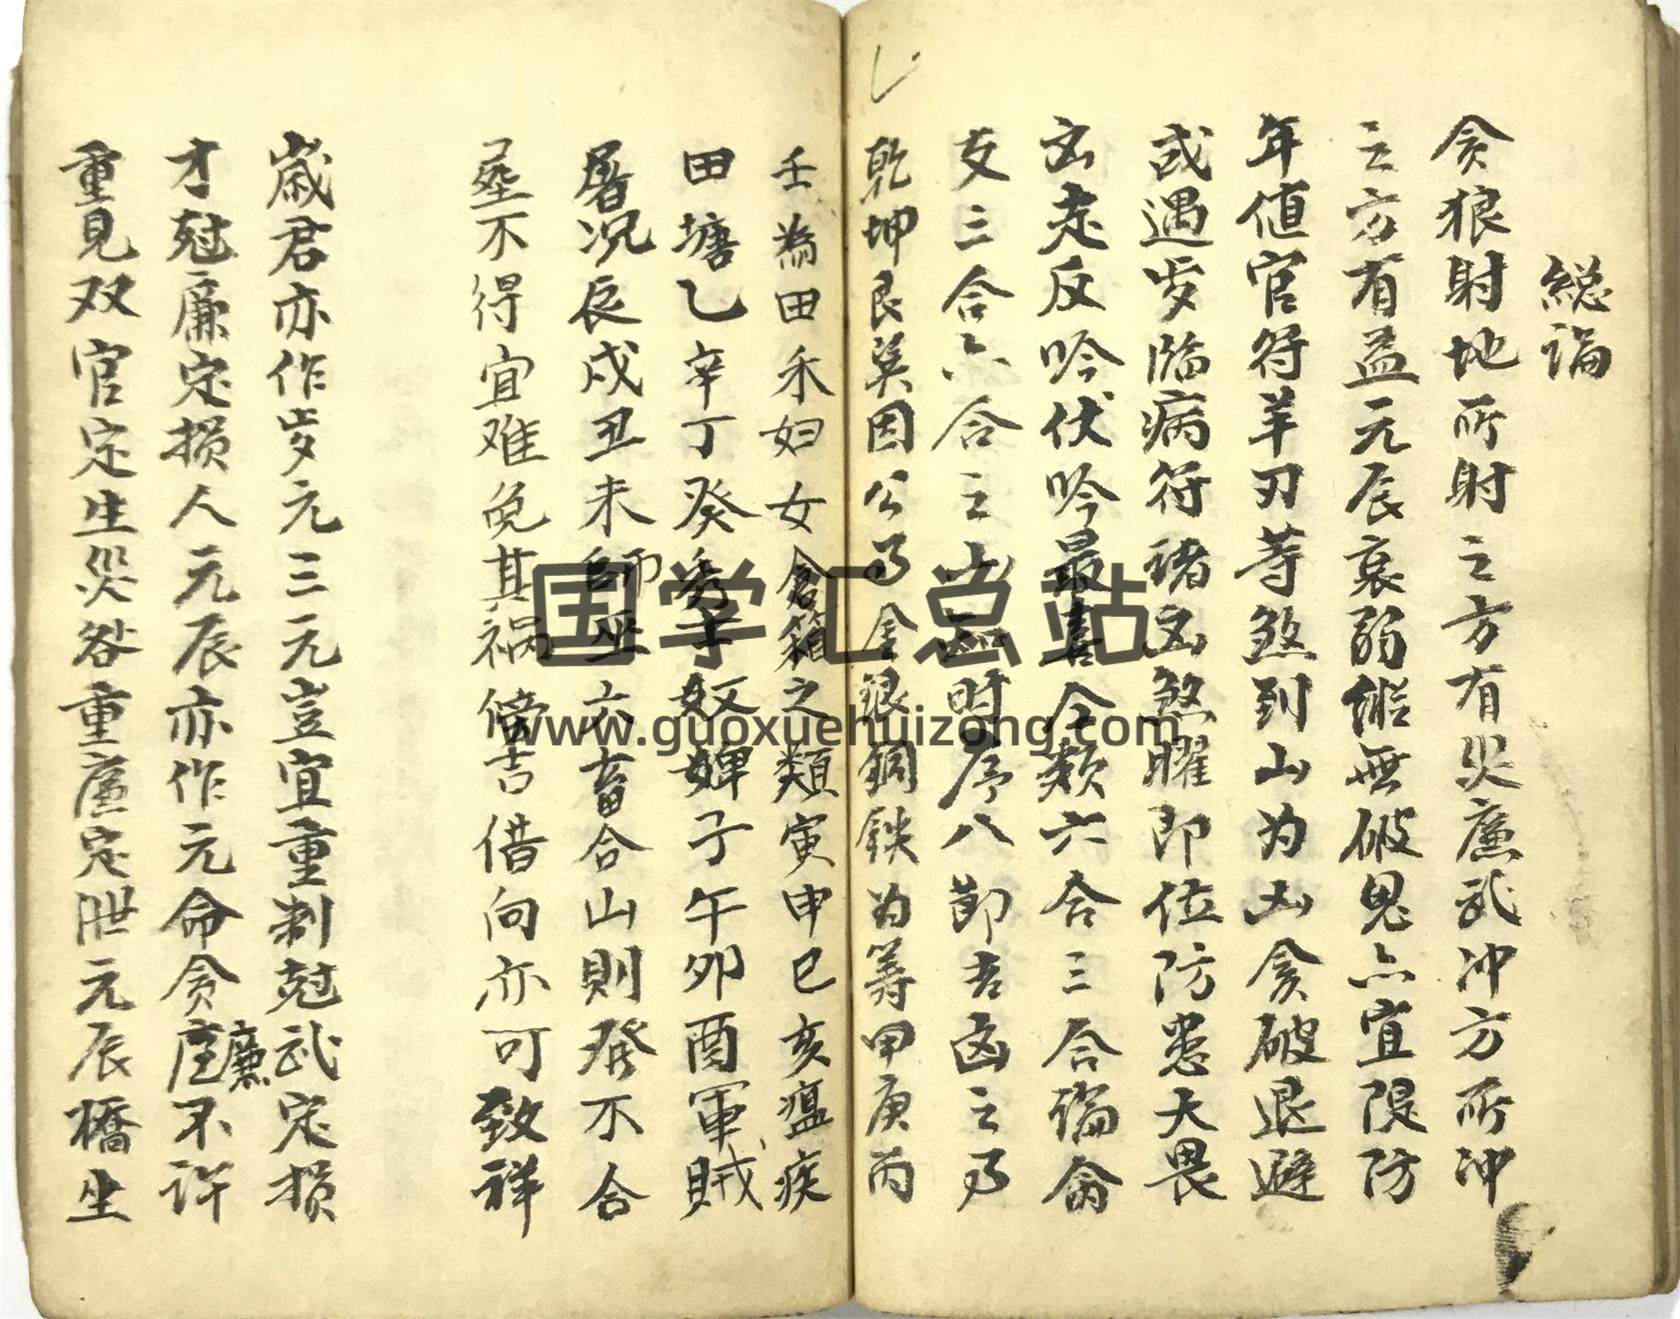 総論
贪狼射地所射之方有災廉武冲方所冲
之方有益元辰衰弱継無破鬼亦宜隄防
年值官符羊刃等煞到山为凶贪破退避
或遇岁臨病符诸凶煞曜即位防患大畏
凶走反吟伏吟最喜全類六合三合論禽
支三合六合之山凶时序八節吉凶之乃
乾坤艮巽因公事金銀銅鉄为筹甲庚丙
壬為田禾妇女倉箱之類寅申巳亥瘟疾
田塘乙辛丁癸秀士奴婢子午卯酉軍賊
屠况辰戌丑未師巫六畜合山則發不合
塟不得宜难免其祸倚吉借向亦可致祥
歲君亦作岁元三元豈宜重剌尅武定損
才尅廉定損人元辰亦作元命贪廉不许
重見双官定生災咎重廉定泄元辰橋生
国学汇总站
www.guoxuehuizong.com